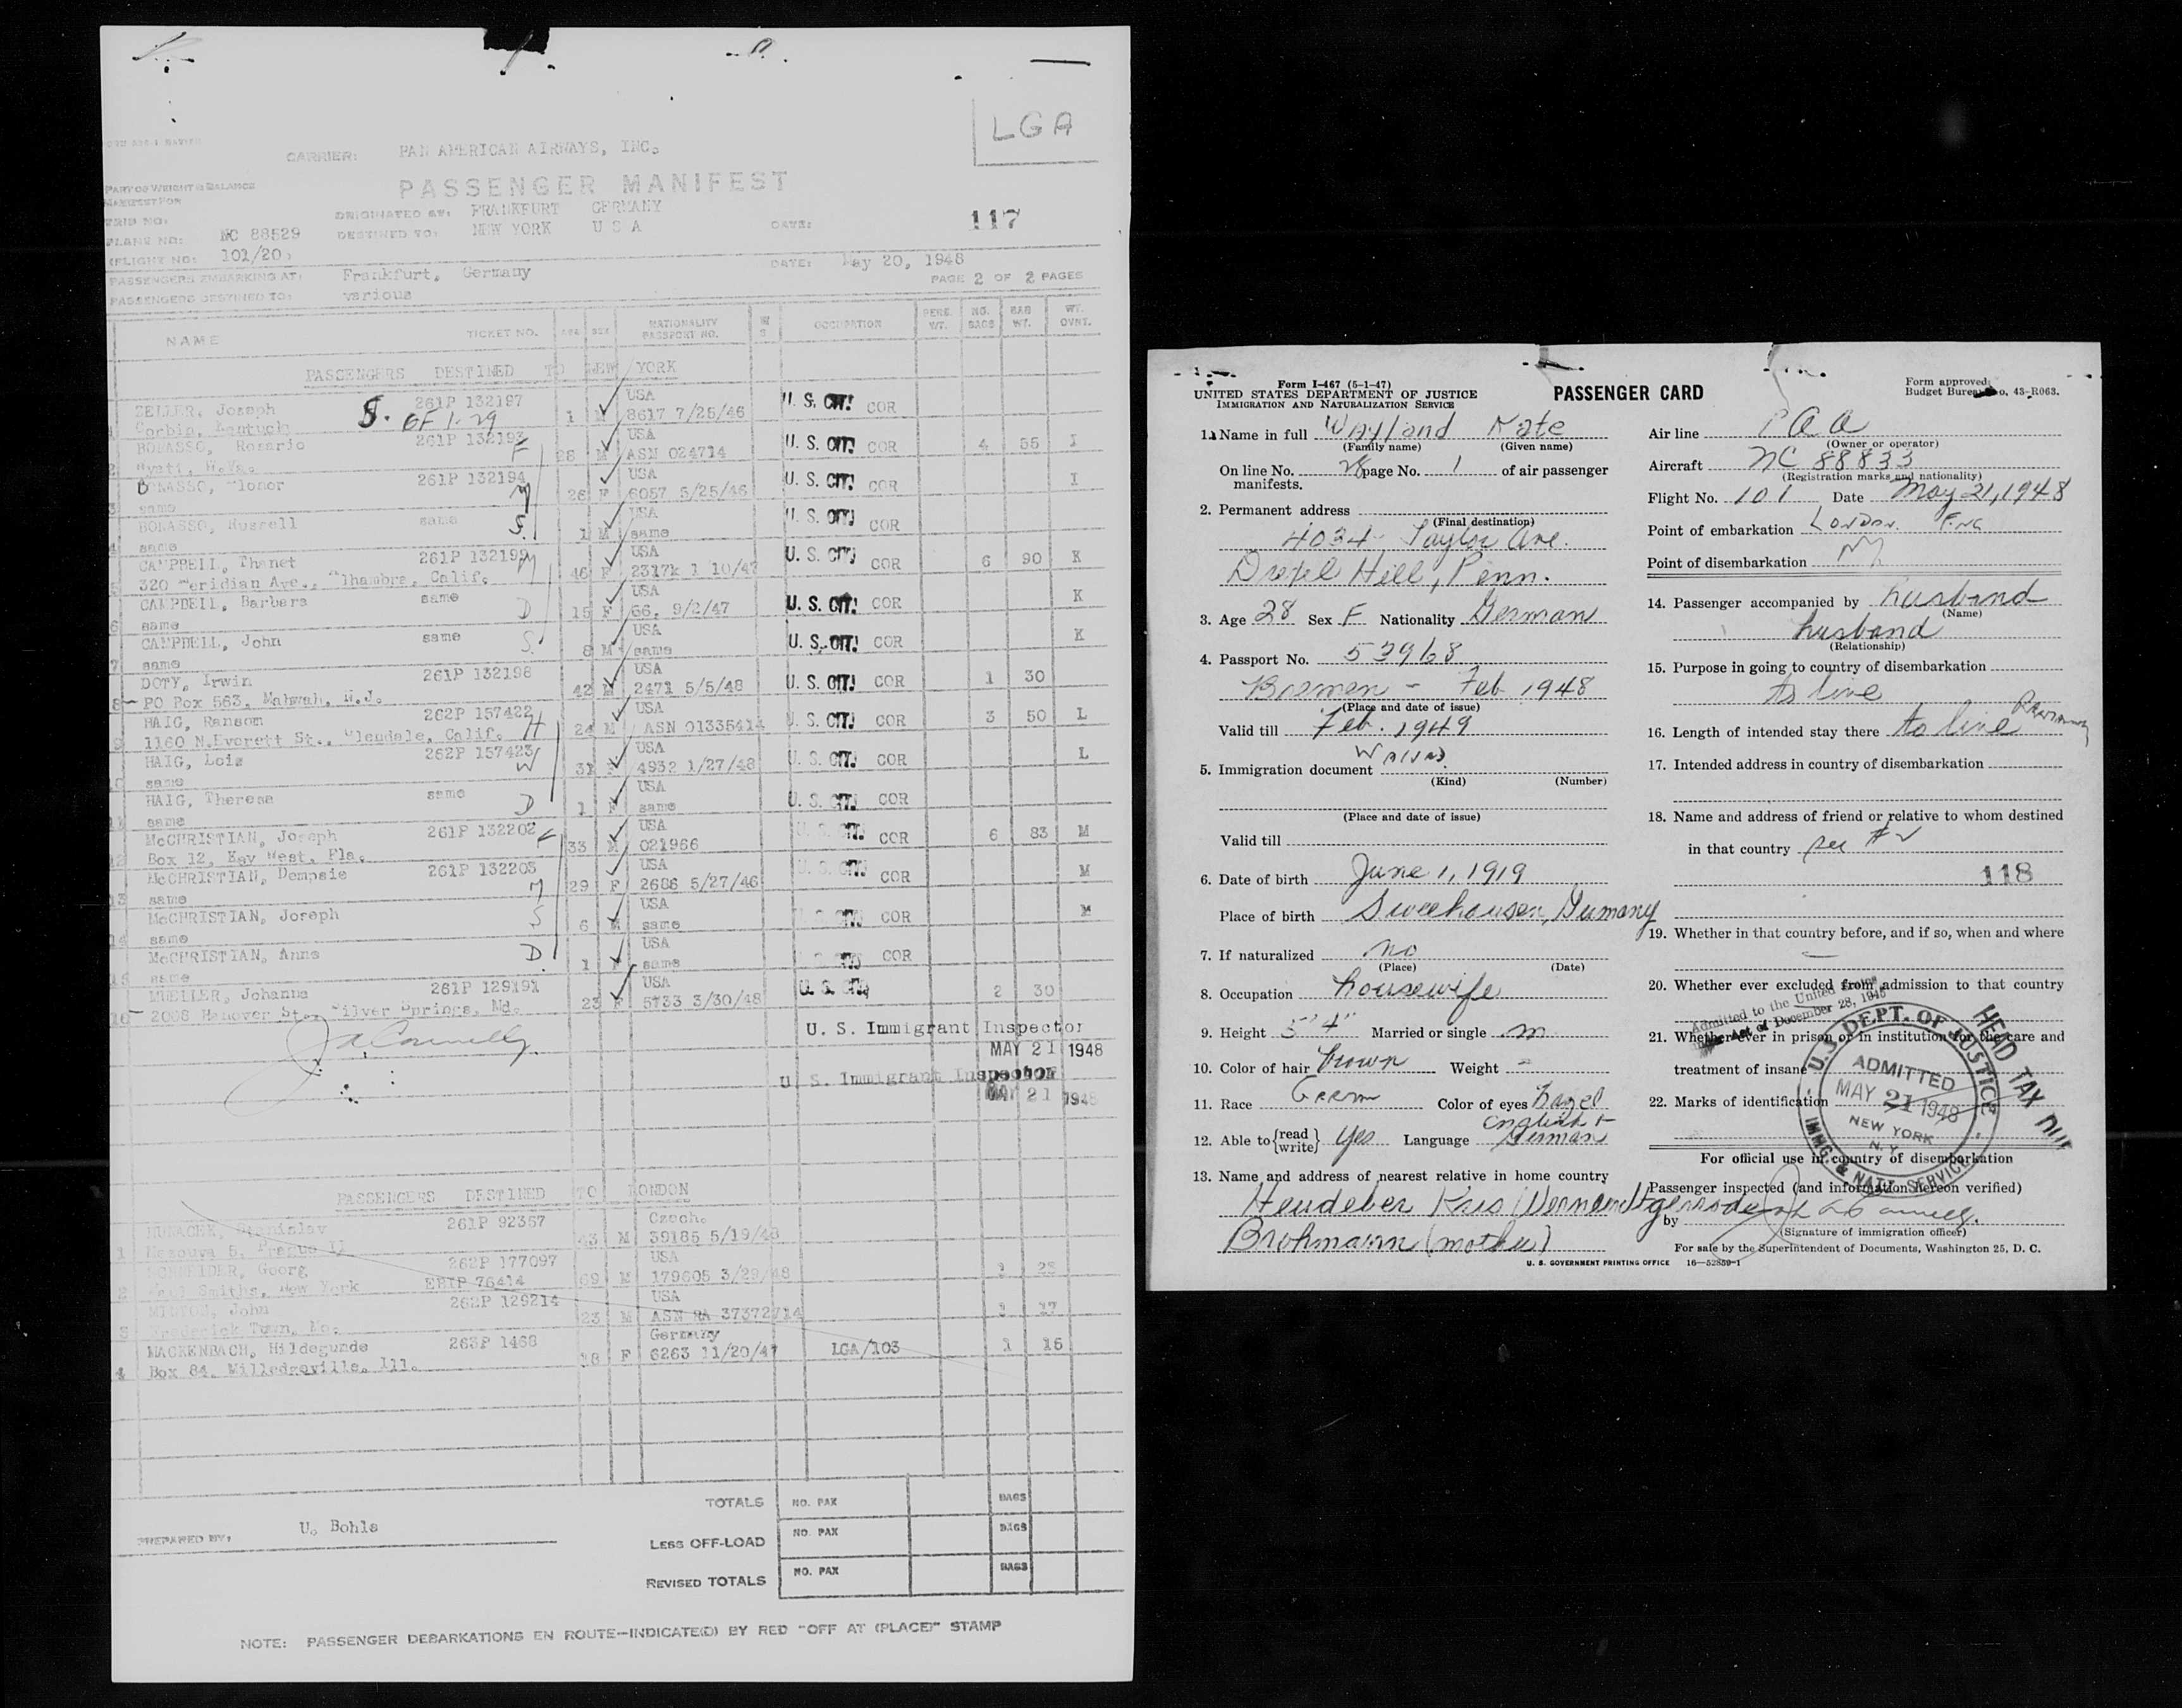 LGA
CARRIER: PAN AMERICAN AIRWAYS, INC.
PASSENGER MANIFEST
PART OF WEIGHT & BALANCE
MANIFEST FOR
TRIP NO:
ORIGINATED AT: FRANKFURT GERMANY
117
PLANE NO: NC 88529
DESTINED TO: NEW YORK U S A
DATE:
(FLIGHT NO: 101/20)
DATE: May 20, 1948
PASSENGERS EMBARKING AT: Frankfurt, Germany
PAGE 2 OF 2 PAGES
PASSENGERS DESTINED TO: various
NAME TICKET NO. AGE SEX NATIONALITY PASSPORT NO. OCCUPATION PERS. WT. NO. BAGS BAG WT. WT. OVNT.
PASSENGERS DESTINED TO NEW YORK
ZELLER, Joseph 261P 132197 USA
1 Corbin, Kentucky S. 6F 1-29 1 M 8617 7/25/46 U. S. CIT! COR
BOBASSO, Rosario 261P 132193 F USA
2 Wyatt, W.Va. 28 M ASN 024714 U. S. CIT! COR 4 55 I
BOBASSO, Elonor 261P 132194 M USA
3 same 26 F 6087 5/25/46 U. S. CIT! COR I
BOBASSO, Russell same S. USA
4 same 1 M same U. S. CIT! COR
CAMPBELL, Thanet 261P 132199 M USA
5 320 Meridian Ave., Alhambra, Calif. 46 F 2317k 1 10/47 U. S. CIT! COR 6 90 K
CAMPBELL, Barbara same D USA
6 same 15 F 66, 9/2/47 U. S. CIT! COR K
CAMPBELL, John same S. USA
7 same 8 M same U. S. CIT! COR K
DOTY, Irwin 261P 132198 USA
8 PO Box 563, Mahwah, N.J. 42 M 2471 5/5/48 U. S. CIT! COR 1 30
HAIG, Ransom 262P 157422 H USA
9 1160 N.Everett St., Glendale, Calif. 24 M ASN 01335414 U. S. CIT! COR 3 50 L
HAIG, Lois 262P 157423 W USA
10 same 31 F 4932 1/27/48 U. S. CIT! COR L
HAIG, Theresa same D USA
11 same 1 F same U. S. CIT! COR
McCHRISTIAN, Joseph 261P 132202 F USA
12 Box 12, Key West, Fla. 33 M 021966 U. S. CIT! COR 6 83 M
McCHRISTIAN, Dempsie 261P 132203 M USA
13 same 29 F 2686 5/27/46 U. S. CIT! COR M
McCHRISTIAN, Joseph S USA
14 same 6 M same COR M
McCHRISTIAN, Anne D. USA
15 same 1 F same COR
MUELLER, Johanna 261P 129191 USA
16 2008 Hanover St., Silver Springs, Md. 23 F 5733 3/30/48 U. S. CIT! 2 30
U. S. Immigrant Inspector
MAY 21 1948
U. S. Immigrant Inspector
MAY 21 1948
PASSENGERS DESTINED TO LONDON
Stanislav 261P 92357 Czech.
1 43 M 39185 5/19/48
SCHNEIDER, Georg 262P 177097 USA
2 Paul Smiths, New York EBTP 76414 69 M 179605 3/29/48 25
John 262P 129214 USA
3 Frederick Town, Mo. 23 M ASN RA 37372714 17
MACKENBACH, Hildegunde 263P 1468 Germany
4 Box 84, Milledgeville, Ill. 18 F 6263 11/20/47 LGA/103 1 16
TOTALS NO. PAX BAGS
PREPARED BY: U. Bohle
LESS OFF-LOAD NO. PAX BAGS
REVISED TOTALS NO. PAX BAGS
NOTE: PASSENGER DEBARKATIONS EN ROUTE—INDICATE(D) BY RED "OFF AT (PLACE)" STAMP
Form I-467 (5-1-47)
UNITED STATES DEPARTMENT OF JUSTICE
IMMIGRATION AND NATURALIZATION SERVICE
PASSENGER CARD
Form approved.
Budget Bureau No. 43-R063.
1. Name in full Wayland Kate
(Family name) (Given name)
On line No. 28 page No. 1 of air passenger
manifests.
2. Permanent address
(Final destination)
4034 Taylor Ave.
Drexel Hill, Penn.
3. Age 28 Sex F Nationality German
4. Passport No. 53968
Bremen - Feb 1948
(Place and date of issue)
Valid till Feb. 1949
5. Immigration document
(Kind) (Number)
(Place and date of issue)
Valid till
6. Date of birth June 1, 1919
Place of birth Germany
7. If naturalized no
(Place) (Date)
8. Occupation housewife
9. Height 5' 4" Married or single m
10. Color of hair brown Weight -
11. Race Germ Color of eyes Hazel
12. Able to {read write} yes Language English + German
13. Name and address of nearest relative in home country
Brohmann (mother)
Air line P A A
(Owner or operator)
Aircraft NC 88833
(Registration marks and nationality)
Flight No. 101 Date May 21, 1948
Point of embarkation London. Eng
Point of disembarkation NY
14. Passenger accompanied by husband
(Name)
husband
(Relationship)
15. Purpose in going to country of disembarkation
to live
16. Length of intended stay there to live
17. Intended address in country of disembarkation
18. Name and address of friend or relative to whom destined
in that country see #2
118
19. Whether in that country before, and if so, when and where
—
20. Whether ever excluded from admission to that country
Admitted to the United States
Act of December 28, 1945
21. Whether ever in prison or in institution for the care and
treatment of insane
22. Marks of identification
U. S. DEPT. OF JUSTICE
ADMITTED
MAY 21 1948
NEW YORK
N. Y.
IMMG. & NATZ. SERVICE
HEAD TAX DUE
For official use in country of disembarkation
Passenger inspected (and information hereon verified)
by
(Signature of immigration officer)
For sale by the Superintendent of Documents, Washington 25, D. C.
U. S. GOVERNMENT PRINTING OFFICE 16—52859-1